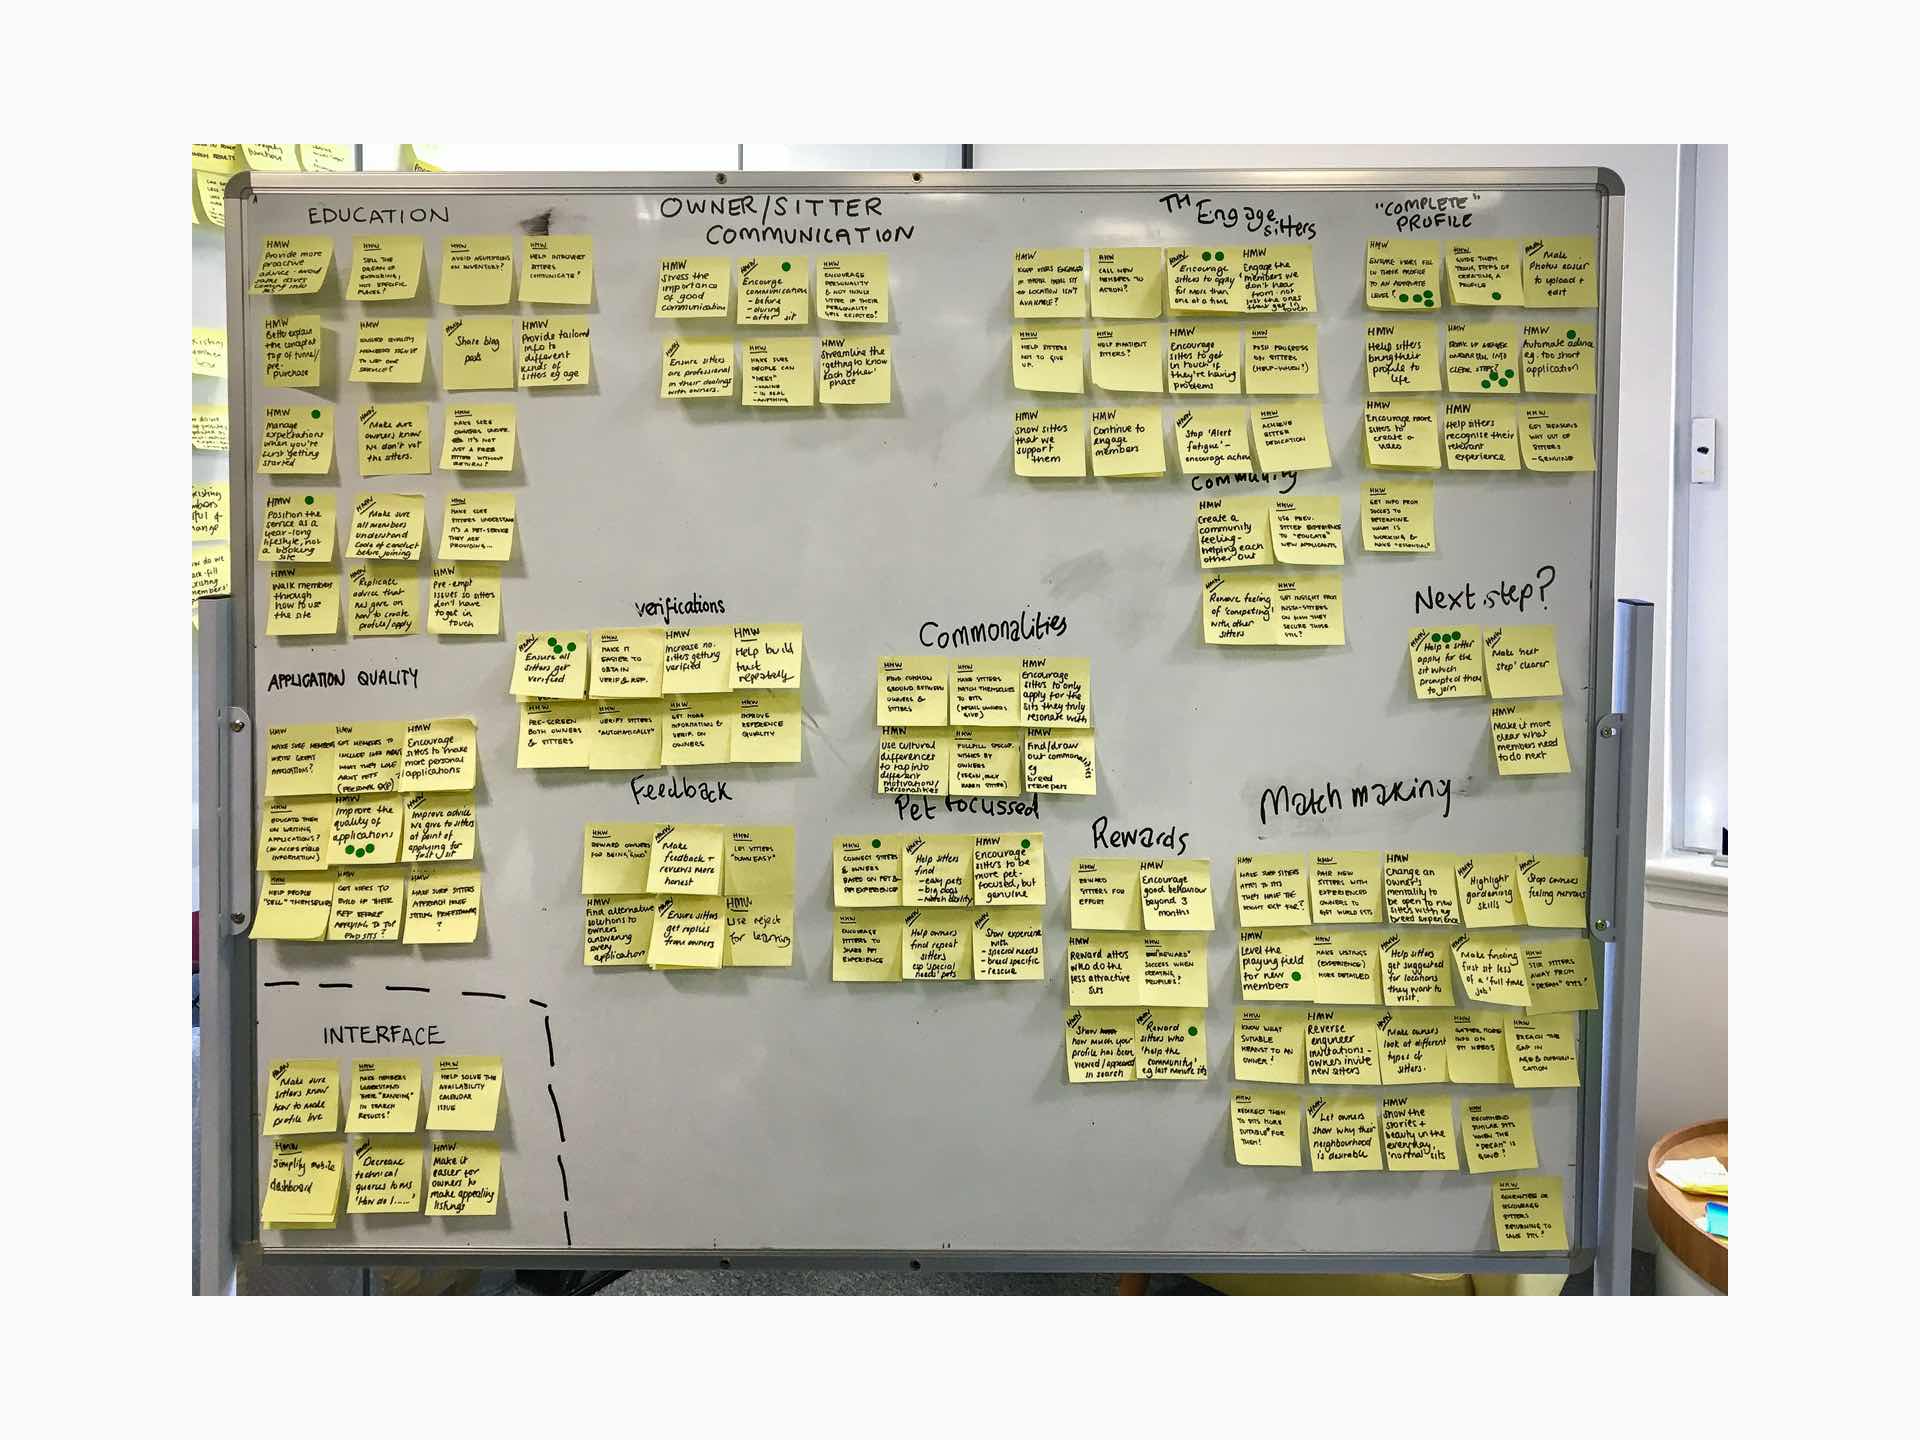 EDUCATION
HMW
Provide more
proactive
advice - avoid
same issues
coming into
HMW
SELL THE
DREAM OF
EXPLORING,
NOT SPECIFIC
PLACES?
HMW
AVOID ASSUMPTIONS
ON INVENTORY?
HMW
HELP INTROVERT
SITTERS
COMMUNICATE?
HMW
Better explain
the concept at
top of funnel/
pre-
purchase
HMW
ENSURE QUALITY
MEMBERS SIGN UP
TO
SERVICE?
HMW
Share blog
posts
HMW
Provide tailored
info to
different
kinds of
sitters eg age
HMW
Manage
expectations
when you're
first getting
started
HMW
Make sure
owners know
we don't vet
the sitters.
HMW
MAKE SURE
OWNERS
IT'S NOT
JUST A FREE
SITTER WITHOUT
RETURN?
HMW
Position the
service as a
year-long
lifestyle, not
a booking
site
HMW
Make sure
all members
understand
code of conduct
before joining
HMW
MAKE SURE
SITTERS UNDERSTAND
IT'S A PET-SERVICE
THEY ARE
PROVIDING...
HMW
Walk members
through
how to use
the site
HMW
Replicate
advice that
MS gave on
how to create
profile/apply
HMW
Pre-empt
issues so sitters
don't have
to get in
touch
OWNER/SITTER
COMMUNICATION
HMW
Stress the
importance
of good
communication
HMW
Encourage
communication
- before
- during
- after sit
HMW
ENCOURAGE
PERSONALITY
& NOT INSULT
SITTER IF THEIR
PERSONALITY
GETS REJECTED?
HMW
Ensure sitters
are professional
in their dealings
with owners.
HMW
MAKE SURE
PEOPLE CAN
"MEET"
- ONLINE
- IN REAL
- ANYTHING
HMW
Streamline the
'getting to know
each other'
phase
TH Engage
sitters
HMW
KEEP USERS ENGAGED
IF THEIR IDEAL SIT
LOCATION ISN'T
AVAILABLE?
HMW
CALL NEW
MEMBERS TO
ACTION?
HMW
Encourage
sitters to apply
for more than
one at a time
HMW
Engage the
members we
don't hear
from - not
just the ones
that get in
touch
HMW
HELP SITTERS
NOT TO GIVE
UP.
HMW
HELP IMPATIENT
SITTERS?
HMW
Encourage
sitters to get
in touch if
they're having
problems
HMW
PUSH PROGRESS
ON SITTERS
(HELP - WHEN?)
HMW
Show sitters
that we
support
them
HMW
Continue to
engage
members
HMW
Stop 'Alert
fatigue' -
encourage action
HMW
ACHIEVE
SITTER
DEDICATION
"COMPLETE"
PROFILE
HMW
ENSURE USERS FILL
IN THEIR PROFILE
TO AN ADEQUATE
LEVEL?
HMW
GUIDE THEM
THRU STEPS OF
CREATING A
PROFILE
HMW
Make
Photos easier
to upload +
edit
HMW
Help sitters
bring their
profile to
life
HMW
BREAK UP
INTO
CLEAR STEPS?
HMW
Automate advice
eg. too short
application
HMW
Encourage more
sitters to
create a
video
HMW
Help sitters
recognise their
relevant
experience
HMW
GET REASONS
WHY OUT OF
SITTERS
- GENUINE
HMW
GET INFO FROM
SUCCESS TO
DETERMINE
WHAT IS
WORKING &
MAKE "ESSENTIAL"
Community
HMW
Create a
community
feeling -
helping each
other out
HMW
USE PREV.
SITTER EXPERIENCE
TO "EDUCATE"
NEW APPLICANTS
HMW
Remove feeling
of 'competing'
with other
sitters
HMW
GET INSIGHT FROM
SITTERS
ON HOW THEY
SECURE THOSE
Next step?
HMW
Help a sitter
apply for the
sit which
prompted them
to join
HMW
Make 'next
step' clearer
HMW
Make it more
clear what
members need
to do next
Verifications
HMW
Ensure all
sitters get
verified
HMW
MAKE IT
EASIER TO
OBTAIN
VERIF & REP.
HMW
Increase no.
sitters getting
verified
HMW
Help build
trust
repeatedly
HMW
PRE-SCREEN
BOTH OWNERS
& SITTERS
HMW
VERIFY SITTERS
"AUTOMATICALLY"
HMW
GET MORE
INFORMATION &
VERIF. ON
OWNERS
HMW
IMPROVE
REFERENCE
QUALITY
Commonalities
HMW
FIND COMMON
GROUND BETWEEN
OWNERS &
SITTERS
HMW
MAKE SITTERS
MATCH THEMSELVES
TO SITS
(DETAIL OWNERS
GIVE)
HMW
Encourage
sitters to only
apply for the
sits they truly
resonate with
HMW
Use cultural
differences
to tap into
different
motivations/
personalities
HMW
FULFILL
WISHES BY
OWNERS
HMW
Find/draw
out commonalities
eg
breed
rescue pets
APPLICATION QUALITY
HMW
MAKE SURE MEMBERS
WRITE GREAT
APPLICATIONS?
HMW
GET MEMBERS TO
INCLUDE INFO ABOUT
WHAT THEY LOVE
ABOUT PETS
(PERSONAL EXP)
HMW
Encourage
sitters to make
more personal
applications
HMW
EDUCATE THEM
ON WRITING
APPLICATIONS?
(IN ACCESSIBLE
INFORMATION)
HMW
Improve the
quality of
applications
HMW
Improve advice
we give to sitters
at point of
applying for
first sit
HMW
HELP PEOPLE
"SELL" THEMSELVES
HMW
GET USERS TO
BUILD UP THEIR
REP BEFORE
APPLYING TO TOP
END SITS?
HMW
MAKE SURE SITTERS
APPROACH HOUSE
SITTING PROFESSIONALLY
?
Feedback
HMW
REWARD OWNERS
FOR BEING "GOOD"
HMW
Make
feedback +
reviews more
honest
HMW
LET SITTERS
"DOWN EASY"
HMW
Find alternative
solutions to
owners
answering
every
application
HMW
Ensure sitters
get replies
from owners
HMW
Use reject
for learning
Pet focussed
HMW
CONNECT SITTERS
& OWNERS
BASED ON PET &
PET EXPERIENCE
HMW
Help sitters
find
- easy pets
- big dogs
- match ability
HMW
Encourage
sitters to be
more pet-
focused, but
genuine
HMW
ENCOURAGE
SITTERS TO
SHARE PET
EXPERIENCE
HMW
Help owners
find repeat
sitters
esp 'special
needs' pets
HMW
Show experience
with
- special needs
- breed specific
- rescue
Rewards
HMW
REWARD
SITTERS FOR
EFFORT
HMW
Encourage
good behaviour
beyond 3
months
HMW
Reward sitters
who do the
less attractive
sits
HMW
"REWARD"
SUCCESS WHEN
CREATING
PROFILES?
HMW
Show
how much your
profile has been
viewed/appeared
in search
HMW
Reward
sitters who
'help the
community'
eg last minute sits
Match making
HMW
MAKE SURE SITTERS
APPLY TO SITS
THEY HAVE THE
RIGHT EXP FOR?
HMW
PAIR NEW
SITTERS WITH
EXPERIENCED
OWNERS TO
HMW
Change an
owner's
mentality to
be open to new
sitters with eg
breed experience
HMW
Highlight
gardening
skills
HMW
Stop owners
feeling nervous
HMW
Level the
playing field
for new
members
HMW
MAKE LISTINGS
(EXPERIENCE)
MORE DETAILED
HMW
Help sitters
get suggested
for locations
they want to
visit.
HMW
Make finding
first sit less
of a 'full time
job'
HMW
STIR SITTERS
AWAY FROM
"DREAM" SITS?
HMW
KNOW WHAT
SUITABLE
MEANS TO AN
OWNER?
HMW
Reverse
engineer
invitations -
owners invite
new sitters
HMW
Make owners
look at different
types of
sitters.
HMW
GATHER MORE
INFO ON
SIT NEEDS
HMW
BREACH THE
GAP IN
AGE & COMMUNI-
CATION
HMW
REDIRECT THEM
TO SITS MORE
SUITABLE FOR
THEM?
HMW
Let owners
show why their
neighbourhood
is desirable
HMW
Show the
stories +
beauty in the
everyday,
'normal' sits
HMW
RECOMMEND
SIMILAR SITS
WHEN THE
"DREAM" IS
GONE?
HMW
GUARANTEE OR
DISCOURAGE
SITTERS
RETURNING TO
SAME SITS?
INTERFACE
HMW
Make sure
sitters know
how to make
profile live
HMW
MAKE MEMBERS
UNDERSTAND
THEIR "RANKING"
IN SEARCH
RESULTS?
HMW
HELP SOLVE THE
AVAILABILITY
CALENDAR
ISSUE
HMW
Simplify mobile
dashboard
HMW
Decrease
technical
queries to MS
'How do I......'
HMW
Make it
easier for
owners to
make appealing
listings